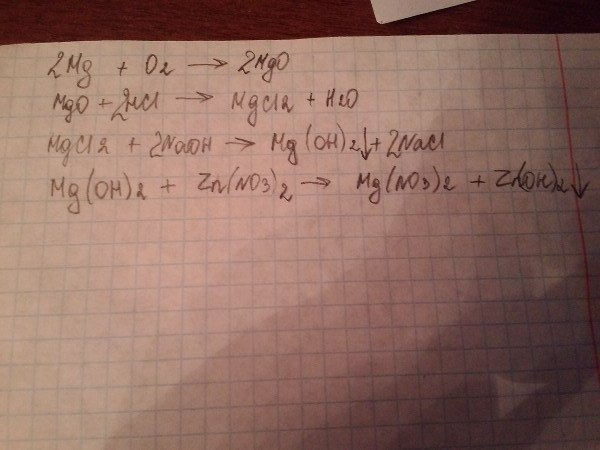 2Mg + O2 → 2MgO
MgO + 2HCl → MgCl2 + H2O
MgCl2 + 2NaOH → Mg(OH)2↓ + 2NaCl
Mg(OH)2 + Zn(NO3)2 → Mg(NO3)2 + Zn(OH)2↓